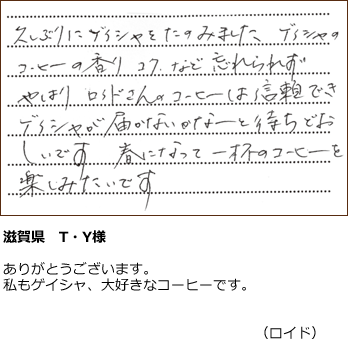 久しぶりにゲイシャをたのみました、ゲイシャの
コーヒーの香り コク、など忘れられず
やはり ロイドさんのコーヒーは信頼でき
ゲイシャが届かないかなーと待ちどお
しいです 春になって一杯のコーヒーを
楽しみたいです
滋賀県 T・Y様
ありがとうございます。
私もゲイシャ、大好きなコーヒーです。
（ロイド）